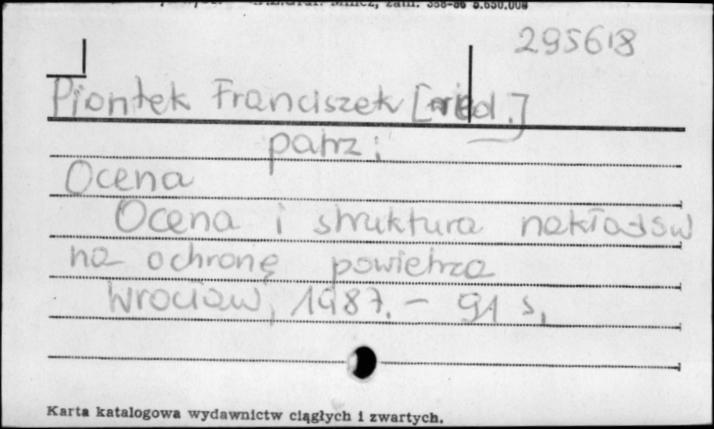 zam. 358-86 5.650.000
295618
Piontek Franciszek [red.]
patrz:
Ocena
Ocena i struktura nakładów
na ochronę powietrza
Wrocław, 1987. - 91 s.
Karta katalogowa wydawnictw ciągłych i zwartych.